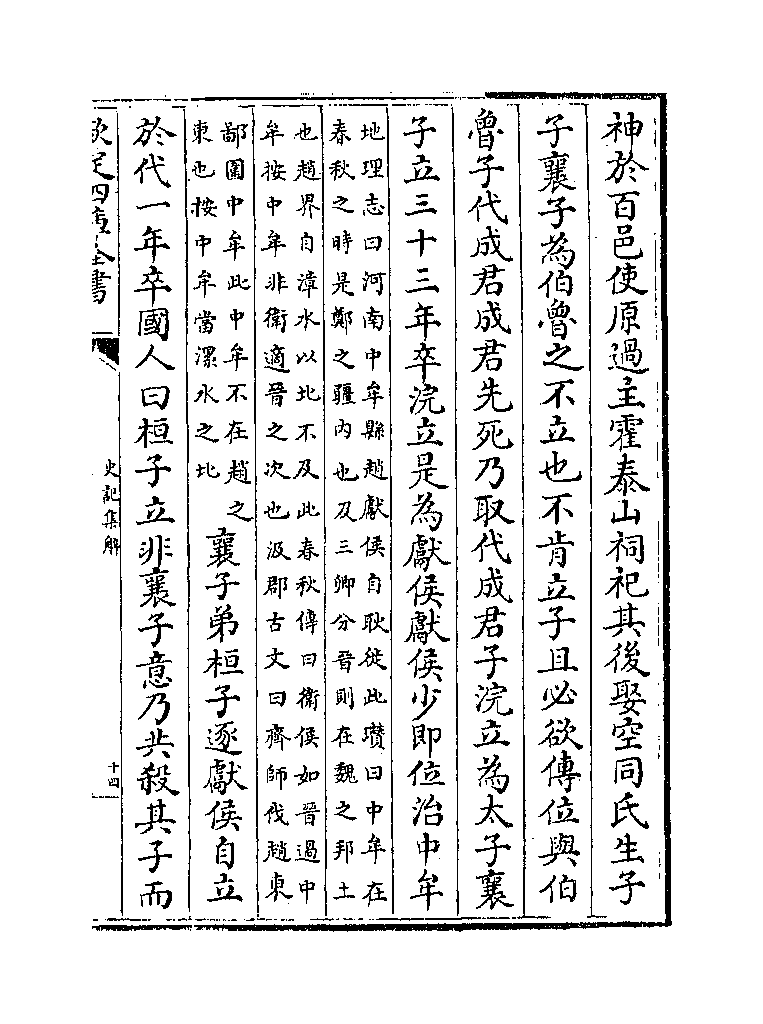 神於百邑使原過主霍泰山祠祀其後娶空同氏生子
子襄子為伯魯之不立也不肯立子且必欲傳位與伯
魯子代成君成君先死乃取代成君子浣立為太子襄
子立三十三年卒浣立是為獻侯獻侯少即位治中牟
地理志曰河南中牟縣趙獻侯自耿徙此瓚曰中牟在
春秋之時是鄭之疆内也及三卿分晉則在魏之邦土
也趙界自漳水以北不及此春秋傳曰衞侯如晉過中
牟按中牟非衛適晉之次也汲郡古文曰齊師伐趙東
鄙圍中牟此中牟不在趙之
東也按中牟當漯水之北
襄子弟桓子逐獻侯自立
於代一年卒國人曰桓子立非襄子意乃共殺其子而
欽定四庫全書
史記集解
十四